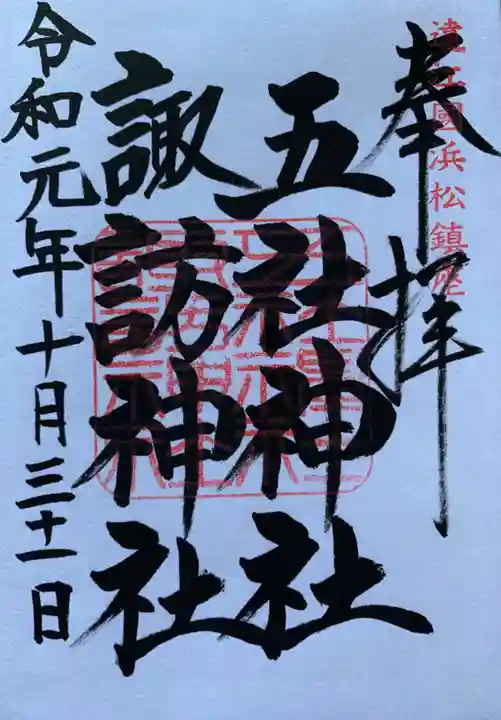 遠江國浜松鎮座
奉拝
五社神社
諏訪神社
令和元年十月三十一日